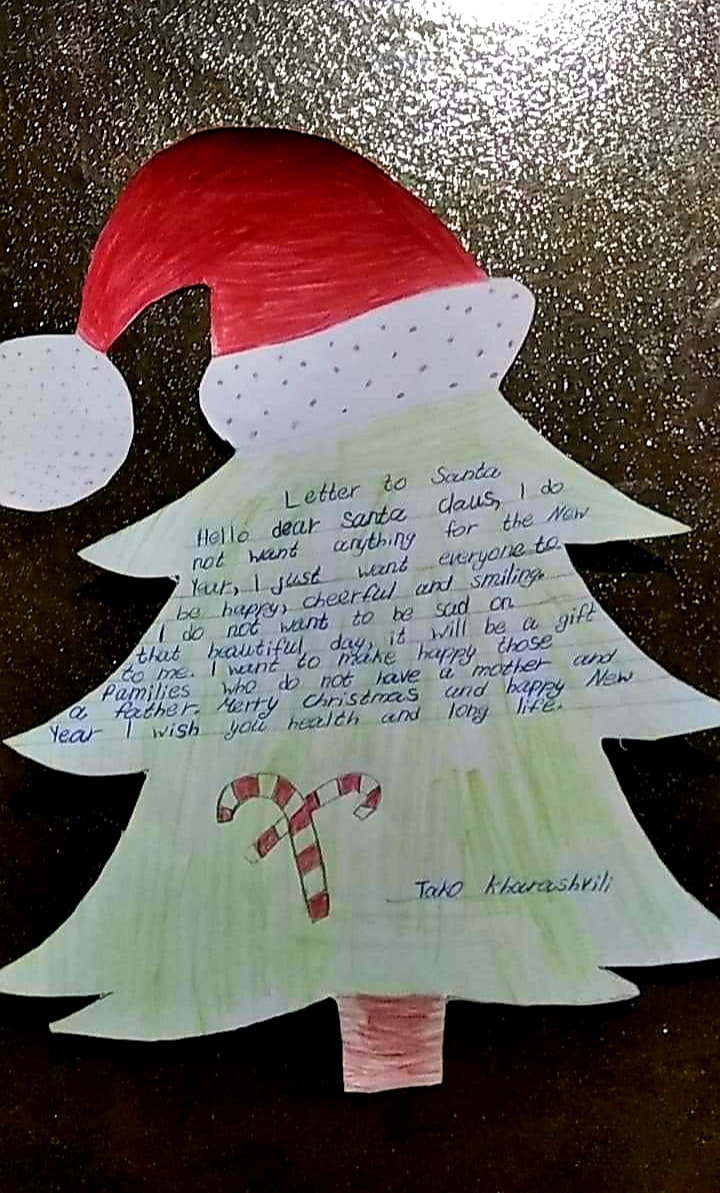 Letter to Santa
Hello dear santa claus, I do
not want anything for the New
Year, I just want everyone to
be happy, cheerful and smiling.
I do not want to be sad on
that beautiful day, it will be a gift
to me. I want to make happy those
Families who do not have a mother and
a father. Merry christmas and happy New
Year I wish you health and long life.
Tako kharashvili